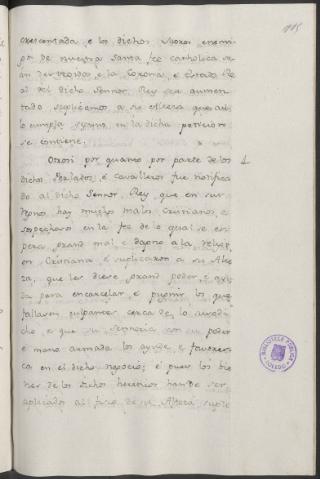 115
crescentada, e los dichos Moros enemi-
gos de nuestra Santa fee catholica se-
an destruidos, e la Corona, e Estado Re-
al del dicho Señor Rey sea aumen-
tado suplicamos a su Alteza que assi
lo cumpla segun en la dicha peticion
se contiene.
Otrosi por quanto por parte de los
dichos Perlados, e cavalleros fue notifica-
do al dicho Señor Rey, que en sus
Reynos hay muchos malos Cristianos, e
sospechosos en la fee de lo qual se es-
pera grand mal e dapno a la religi-
on Cristiana e suplicaron a su Alte-
za, que les diese grand poder e ayu-
da para encarcelar, e pugnir los que
fallaren culpantes cerca de lo susodi-
cho, e que su Señoria con su poder
e mano armada los ayude e favores-
ca en el dicho negocio; e pues los bie-
nes de los dichos hereticos han de ser
aplicados al fisco de su Alteza suple
4
BIBLIOTECA PUBLICA
TOLEDO